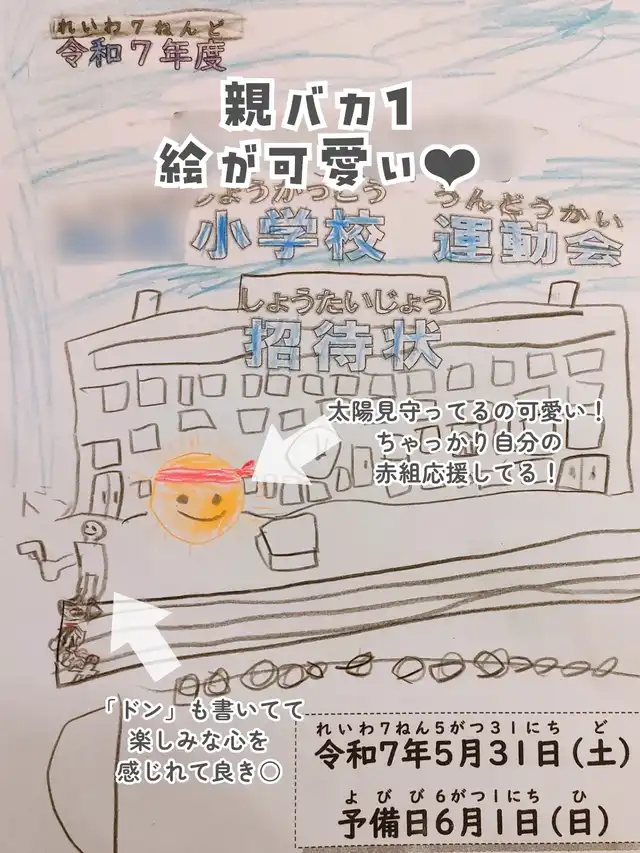 れいわ7ねんど
令和7年度
親バカ1
絵が可愛い❤
しょうがっこう うんどうかい
小学校 運動会
しょうたいじょう
招待状
太陽見守ってるの可愛い！
ちゃっかり自分の
赤組応援してる！
ドン
「ドン」も書いてて
楽しみな心を
感じれて良き○
れいわ7ねん5がつ31にち ど
令和7年5月31日(土)
よびび6がつ1にち ひ
予備日6月1日(日)